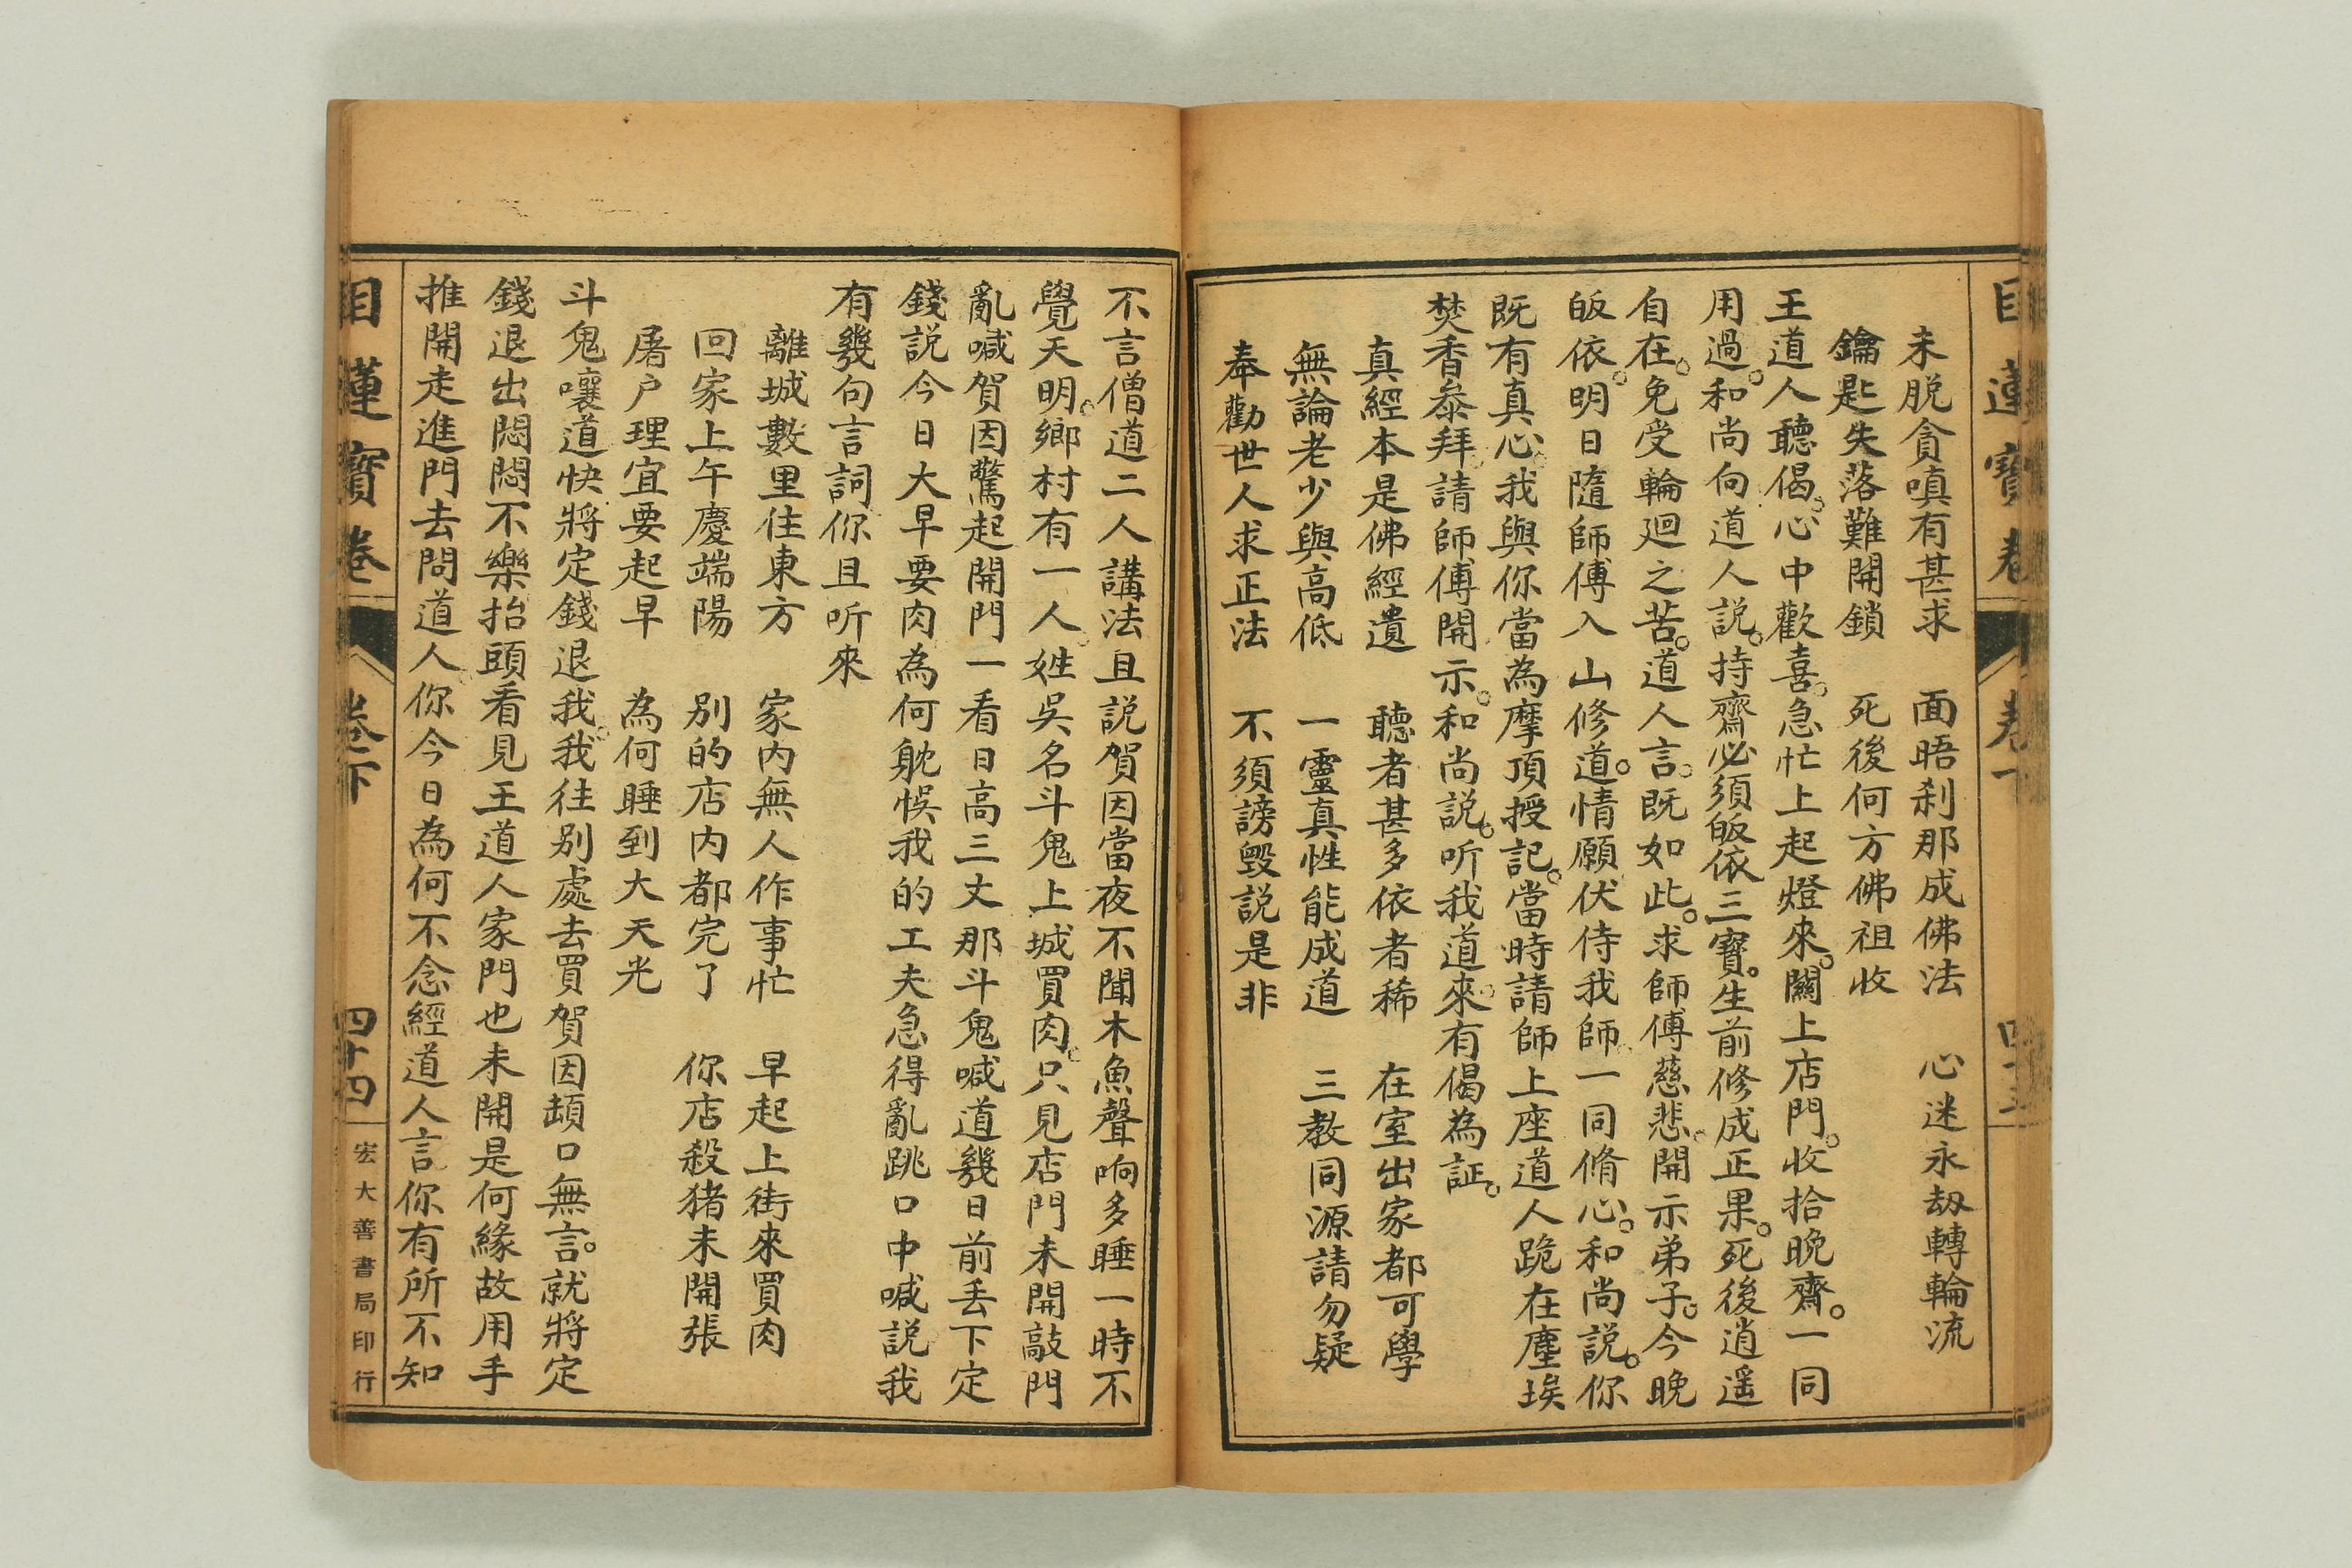 目蓮寶卷 卷下
未脱貪嗔有甚求 面晤刹那成佛法 心迷永刼轉輪流
鑰匙失落難開鎖 死後何方佛祖收
王道人聽偈。心中歡喜。急忙上起燈來。關上店門。收拾晚齋。一同
用過。和尚向道人説。持齋必須皈依三寶。生前修成正果。死後逍遥
自在。免受輪迴之苦。道人言。既如此。求師傅慈悲。開示弟子。今晚
皈依。明日隨師傅入山修道。情願伏侍我師。一同脩心。和尚説。你
既有真心。我與你當為摩頂授記。當時請師上座道人跪在塵埃
焚香叅拜。請師傅開示。和尚説。听我道來。有偈為証。
真經本是佛經遺 聽者甚多依者稀 在室出家都可學
無論老少與高低 一靈真性能成道 三教同源請勿疑
奉勸世人求正法 不須謗毁説是非
不言僧道二人講法且説賀因當夜不聞木魚聲响多睡一時不
覺天明。鄉村有一人。姓吳名斗鬼上城買肉。只見店門未開敲門
亂喊賀因驚起開門一看日高三丈那斗鬼喊道幾日前丢下定
錢説今日大早要肉為何躭悞我的工夫急得亂跳口中喊説我
有幾句言詞你且听來
離城數里住東方 家内無人作事忙 早起上街來買肉
回家上午慶端陽 别的店内都完了 你店殺猪未開張
屠户理宜要起早 為何睡到大天光
斗鬼嚷道快將定錢退我。我往别處去買賀因頡口無言。就將定
錢退出悶悶不樂抬頭看見王道人家門也未開是何緣故用手
推開走進門去問道人。你今日為何不念經道人言你有所不知
目蓮寶卷 卷下 四十四 宏大善書局印行